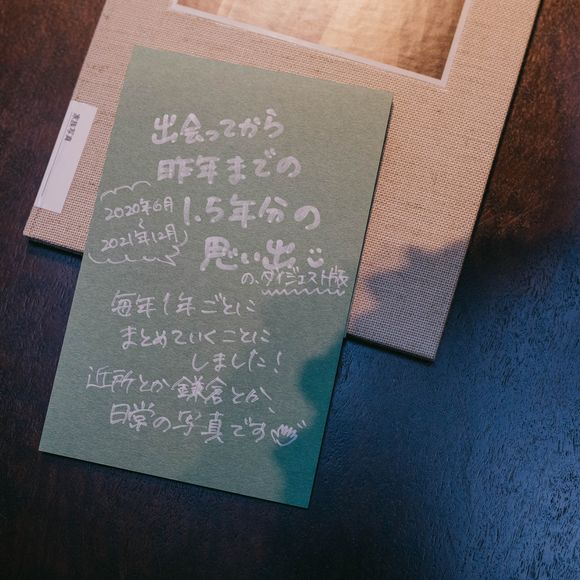 出会ってから
昨年までの
2020年6月
〜
2021年12月
1.5年分の
思い出
の、ダイジェスト版
毎年1年ごとに
まとめていくことに
しました!
近所とか鎌倉とか、
日常の写真です
家族写真